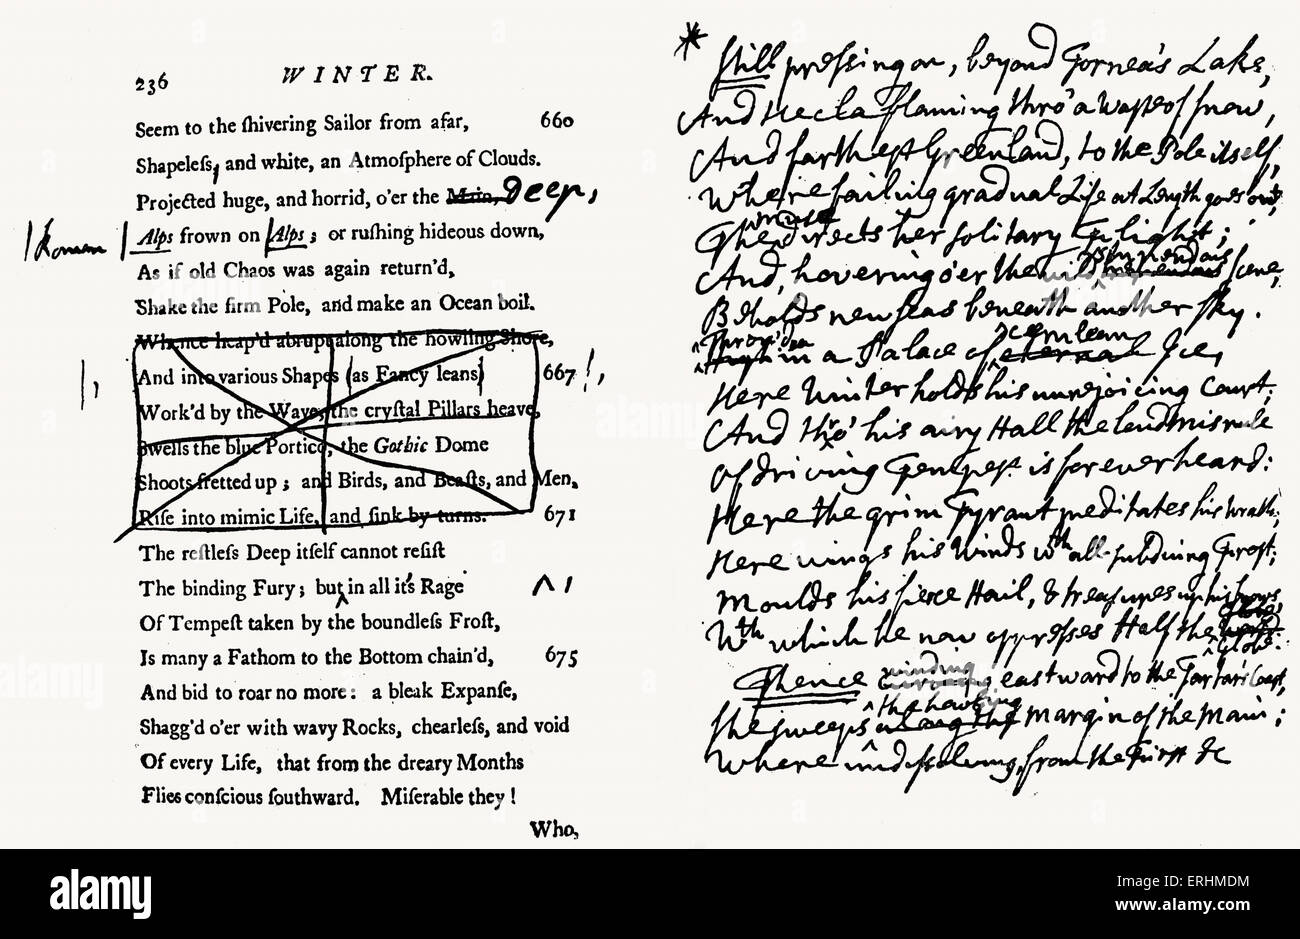 236 WINTER.
Seem to the ſhivering Sailor from afar, 660
Shapeleſs, and white, an Atmoſphere of Clouds.
Projected huge, and horrid, o'er the Main, Deep,
|Roman| Alps frown on Alps; or ruſhing hideous down,
As if old Chaos was again return'd,
Shake the firm Pole, and make an Ocean boil.
Whence heap'd abrupt along the howling Shore,
|, And into various Shapes (as Fancy leans) 667 !,
Work'd by the Wave, the cryſtal Pillars heave,
Swells the blue Portico, the Gothic Dome
Shoots fretted up; and Birds, and Beaſts, and Men,
Riſe into mimic Life, and ſink by turns. 671
The reſtleſs Deep itſelf cannot reſiſt
The binding Fury; but in all it's Rage ^ 1
Of Tempeſt taken by the boundleſs Froſt,
Is many a Fathom to the Bottom chain'd, 675
And bid to roar no more: a bleak Expanſe,
Shagg'd o'er with wavy Rocks, chearleſs, and void
Of every Life, that from the dreary Months
Flies conſcious ſouthward. Miſerable they!
Who,
* Still preſsing on, beyond Tornea's Lake,
And Hecla flaming thro' a waſte of ſnow,
And fartheſt Greenland, to the Pole itſelf,
Where failing gradual Life at Length goes out,
The Muſe directs her ſolitary Flight;
And, hovering o'er the wild ſtupendous ſcene,
Beholds new ſeas beneath another ſky.
Thron'd in a Palace of cerulean Ice,
Here Winter holds his unrejoicing Court;
And thro' his airy Hall the loud miſrule
Of driving Tempeſt is for ever heard:
Here the grim Tyrant meditates his wrath;
Here wings his Winds wth all-ſubduing Froſt;
Moulds his fierce Hail, & treaſures up his ſnows,
Wth which he now oppreſses Half the Globe.
Thence winding eastward to the Tartar's Coaſt,
She ſweeps the howling margin of the Main;
Where undiſsolving, from the Firſt &c
alamy
Image ID: ERHMDM
www.alamy.com